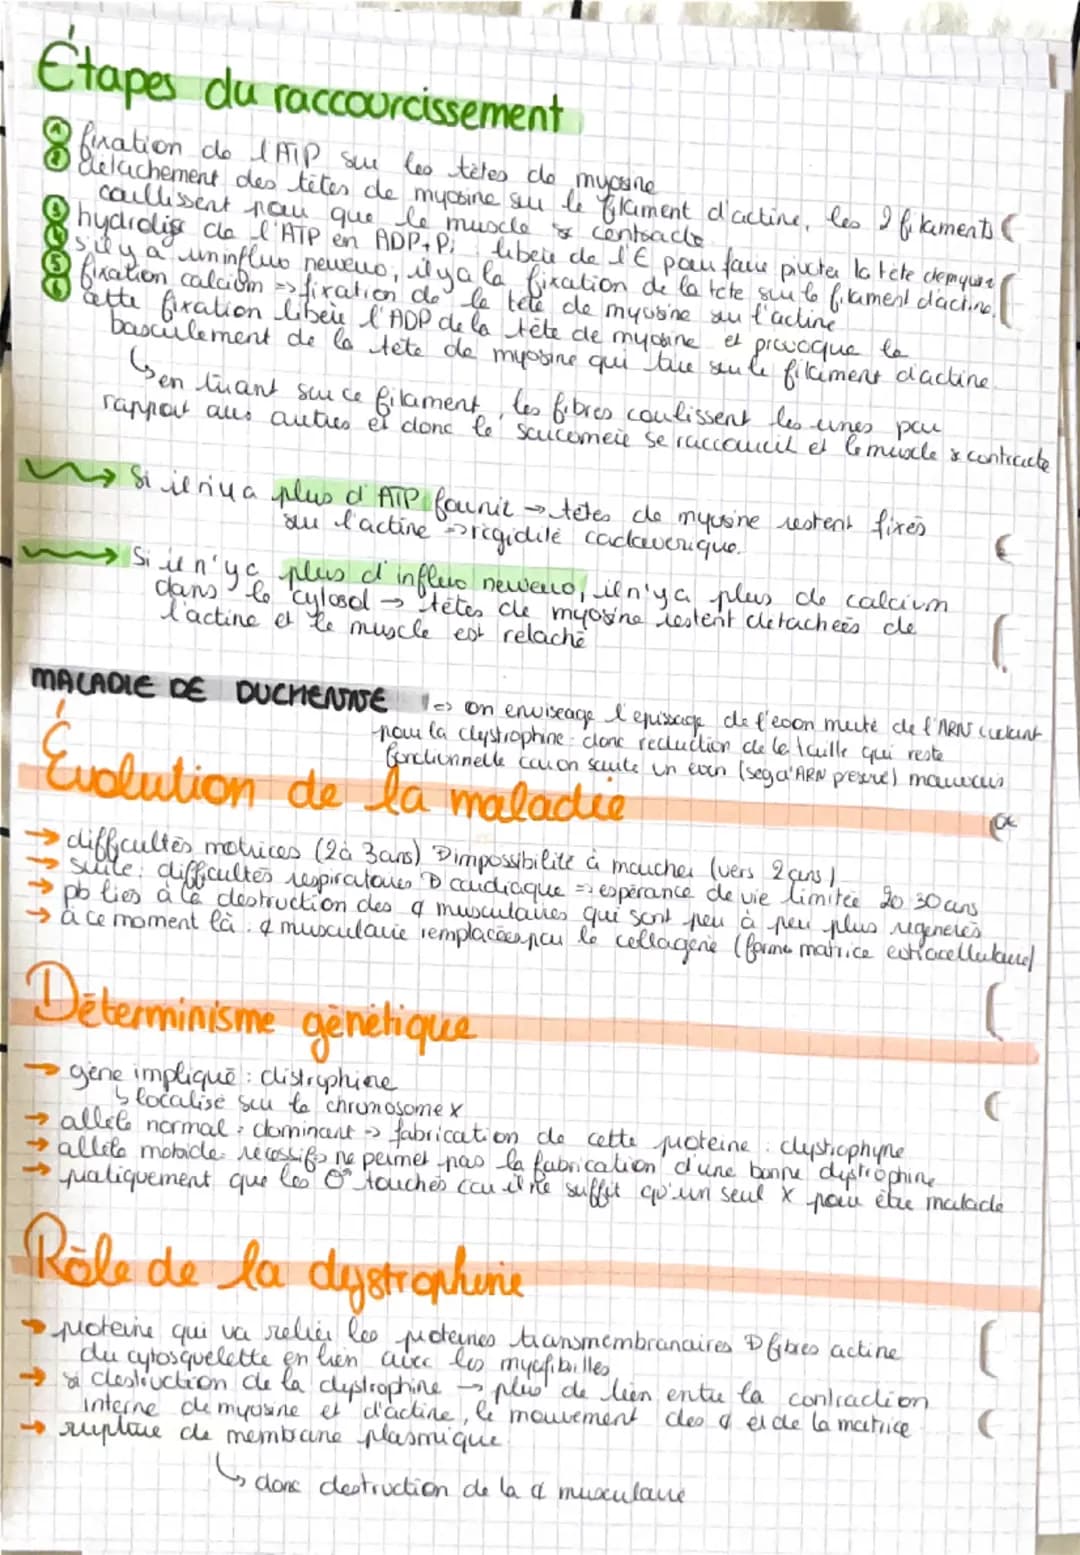 Étapes du raccourcissement
1 fixation de l'ATP sur les têtes de myosine
2 détachement des têtes de myosine sur le filament d'actine, les 2 filaments
coulissent pour que le muscle se contracte
3 hydrolise de l'ATP en ADP+Pi libère de l'E pour faire pivoter la tête de myosine
4 s'il y a un influx nerveux, il y a la fixation de la tête sur le filament d'actine
5 fixation calcium => fixation de la tête de myosine sur l'actine
6 cette fixation libère l'ADP de la tête de myosine et provoque le
basculement de la tête de myosine qui tire sur le filament d'actine.
↳ en tirant sur ce filament, les fibres coulissent les unes par
rapport aux autres et donc le sarcomère se raccourcit et le muscle se contracte
Si il n'y a plus d'ATP fournit → têtes de myosine restent fixés
sur l'actine → rigidité cadavérique.
Si il n'y a plus d'influx nerveux, il n'y a plus de calcium
dans le cytosol → têtes de myosine restent détachées de
l'actine et le muscle est relaché
MALADIE DE DUCHENNE => on envisage l'épissage de l'exon muté de l'ARN
pour la dystrophine donc réduction de la taille qui reste
fonctionnelle car on saute un exon
Évolution de la maladie
→ difficultés motrices (2 à 3 ans) impossibilité à marcher (vers ans)
→ suite : difficultés respiratoires cardiaque => espérance de vie limitée 20 30 ans
→ pb liés à la destruction des musculaires qui sont peu à peu plus régénérés
→ à ce moment là : musculaire remplacées par le collagène (forme matrice extracellulaire)
Déterminisme génétique
→ gène impliqué : distrophine
↳ localisé sur le chromosome X
→ allèle normal : dominant → fabrication de cette protéine : dystrophyne
→ allèle morbide récessif → ne permet pas la fabrication d'une bonne dystrophine
→ pratiquement que les ♂ touchés car il ne suffit qu'un seul X pour être malade
Rôle de la dystrophine
→ protéine qui va relier les protéines transmembranaires fibres actine
du cytosquelette en lien avec les myofibrilles
→ si destruction de la dystrophine → plus de lien entre la contraction
interne de myosine et d'actine, le mouvement des et de la matrice
→ rupture de membrane plasmique
↳ donc destruction de la musculaire